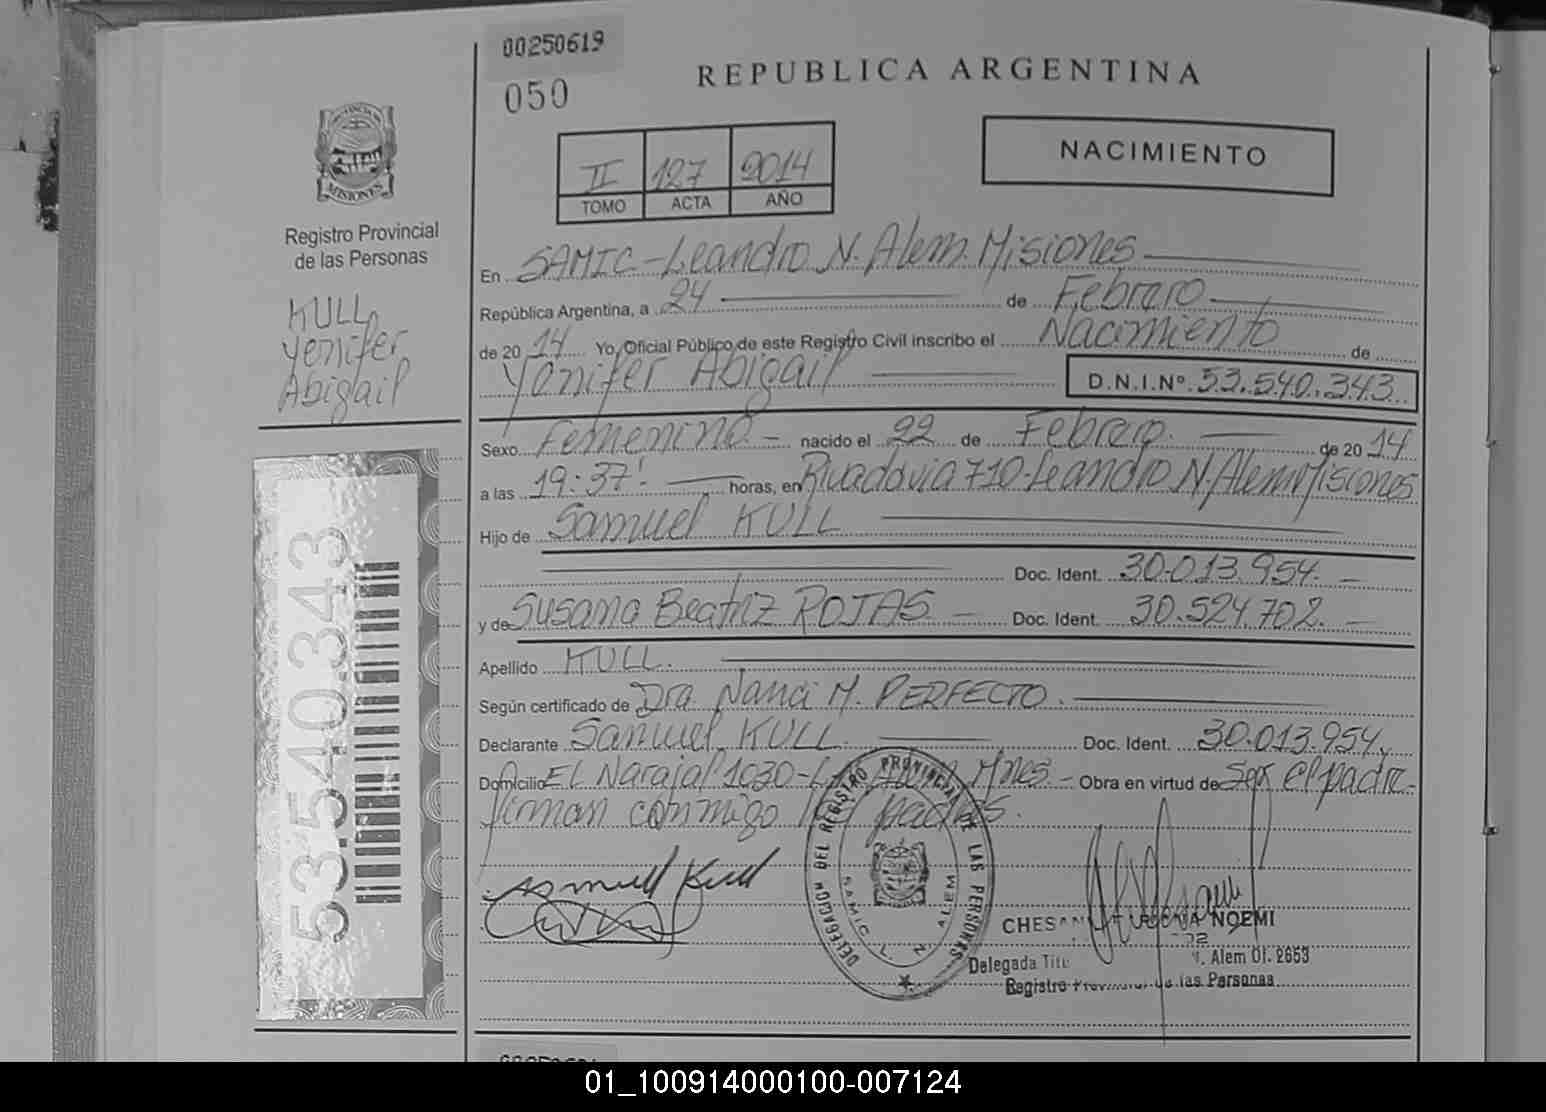 00250619
050
REPUBLICA ARGENTINA
II 127 2014
TOMO ACTA AÑO
NACIMIENTO
MISIONES
Registro Provincial
de las Personas
KULL
Yenifer
Abigail
En SAMIC - Leandro N. Alem. Misiones
República Argentina, a 24 de Febrero
de 20 14 Yo, Oficial Público de este Registro Civil inscribo el Nacimiento de
Yenifer Abigail D.N.I.Nº 53.540.343
Sexo Femenino - nacido el 22 de Febrero. de 20 14
a las 19:37' horas, en Rivadavia 710-Leandro N. Alem Misiones
Hijo de Samuel KULL
Doc. Ident. 30.013.954.
y de Susana Beatriz ROJAS Doc. Ident. 30.524.702.
Apellido KULL.
Según certificado de Dra. Nanci M. PERFECTO.
Declarante Samuel KULL. Doc. Ident. 30.013.954.
Domicilio El Narajal 1030 - Mnes. - Obra en virtud de Ser el padre-
firman conmigo los padres.
53.540.343
DELEGACION DEL REGISTRO PROVINCIAL DE LAS PERSONAS
SAMIC L. N. ALEM
CHES NOEMI
Delegada Alem Of. 2653
Registro de las Personas
01_100914000100-007124